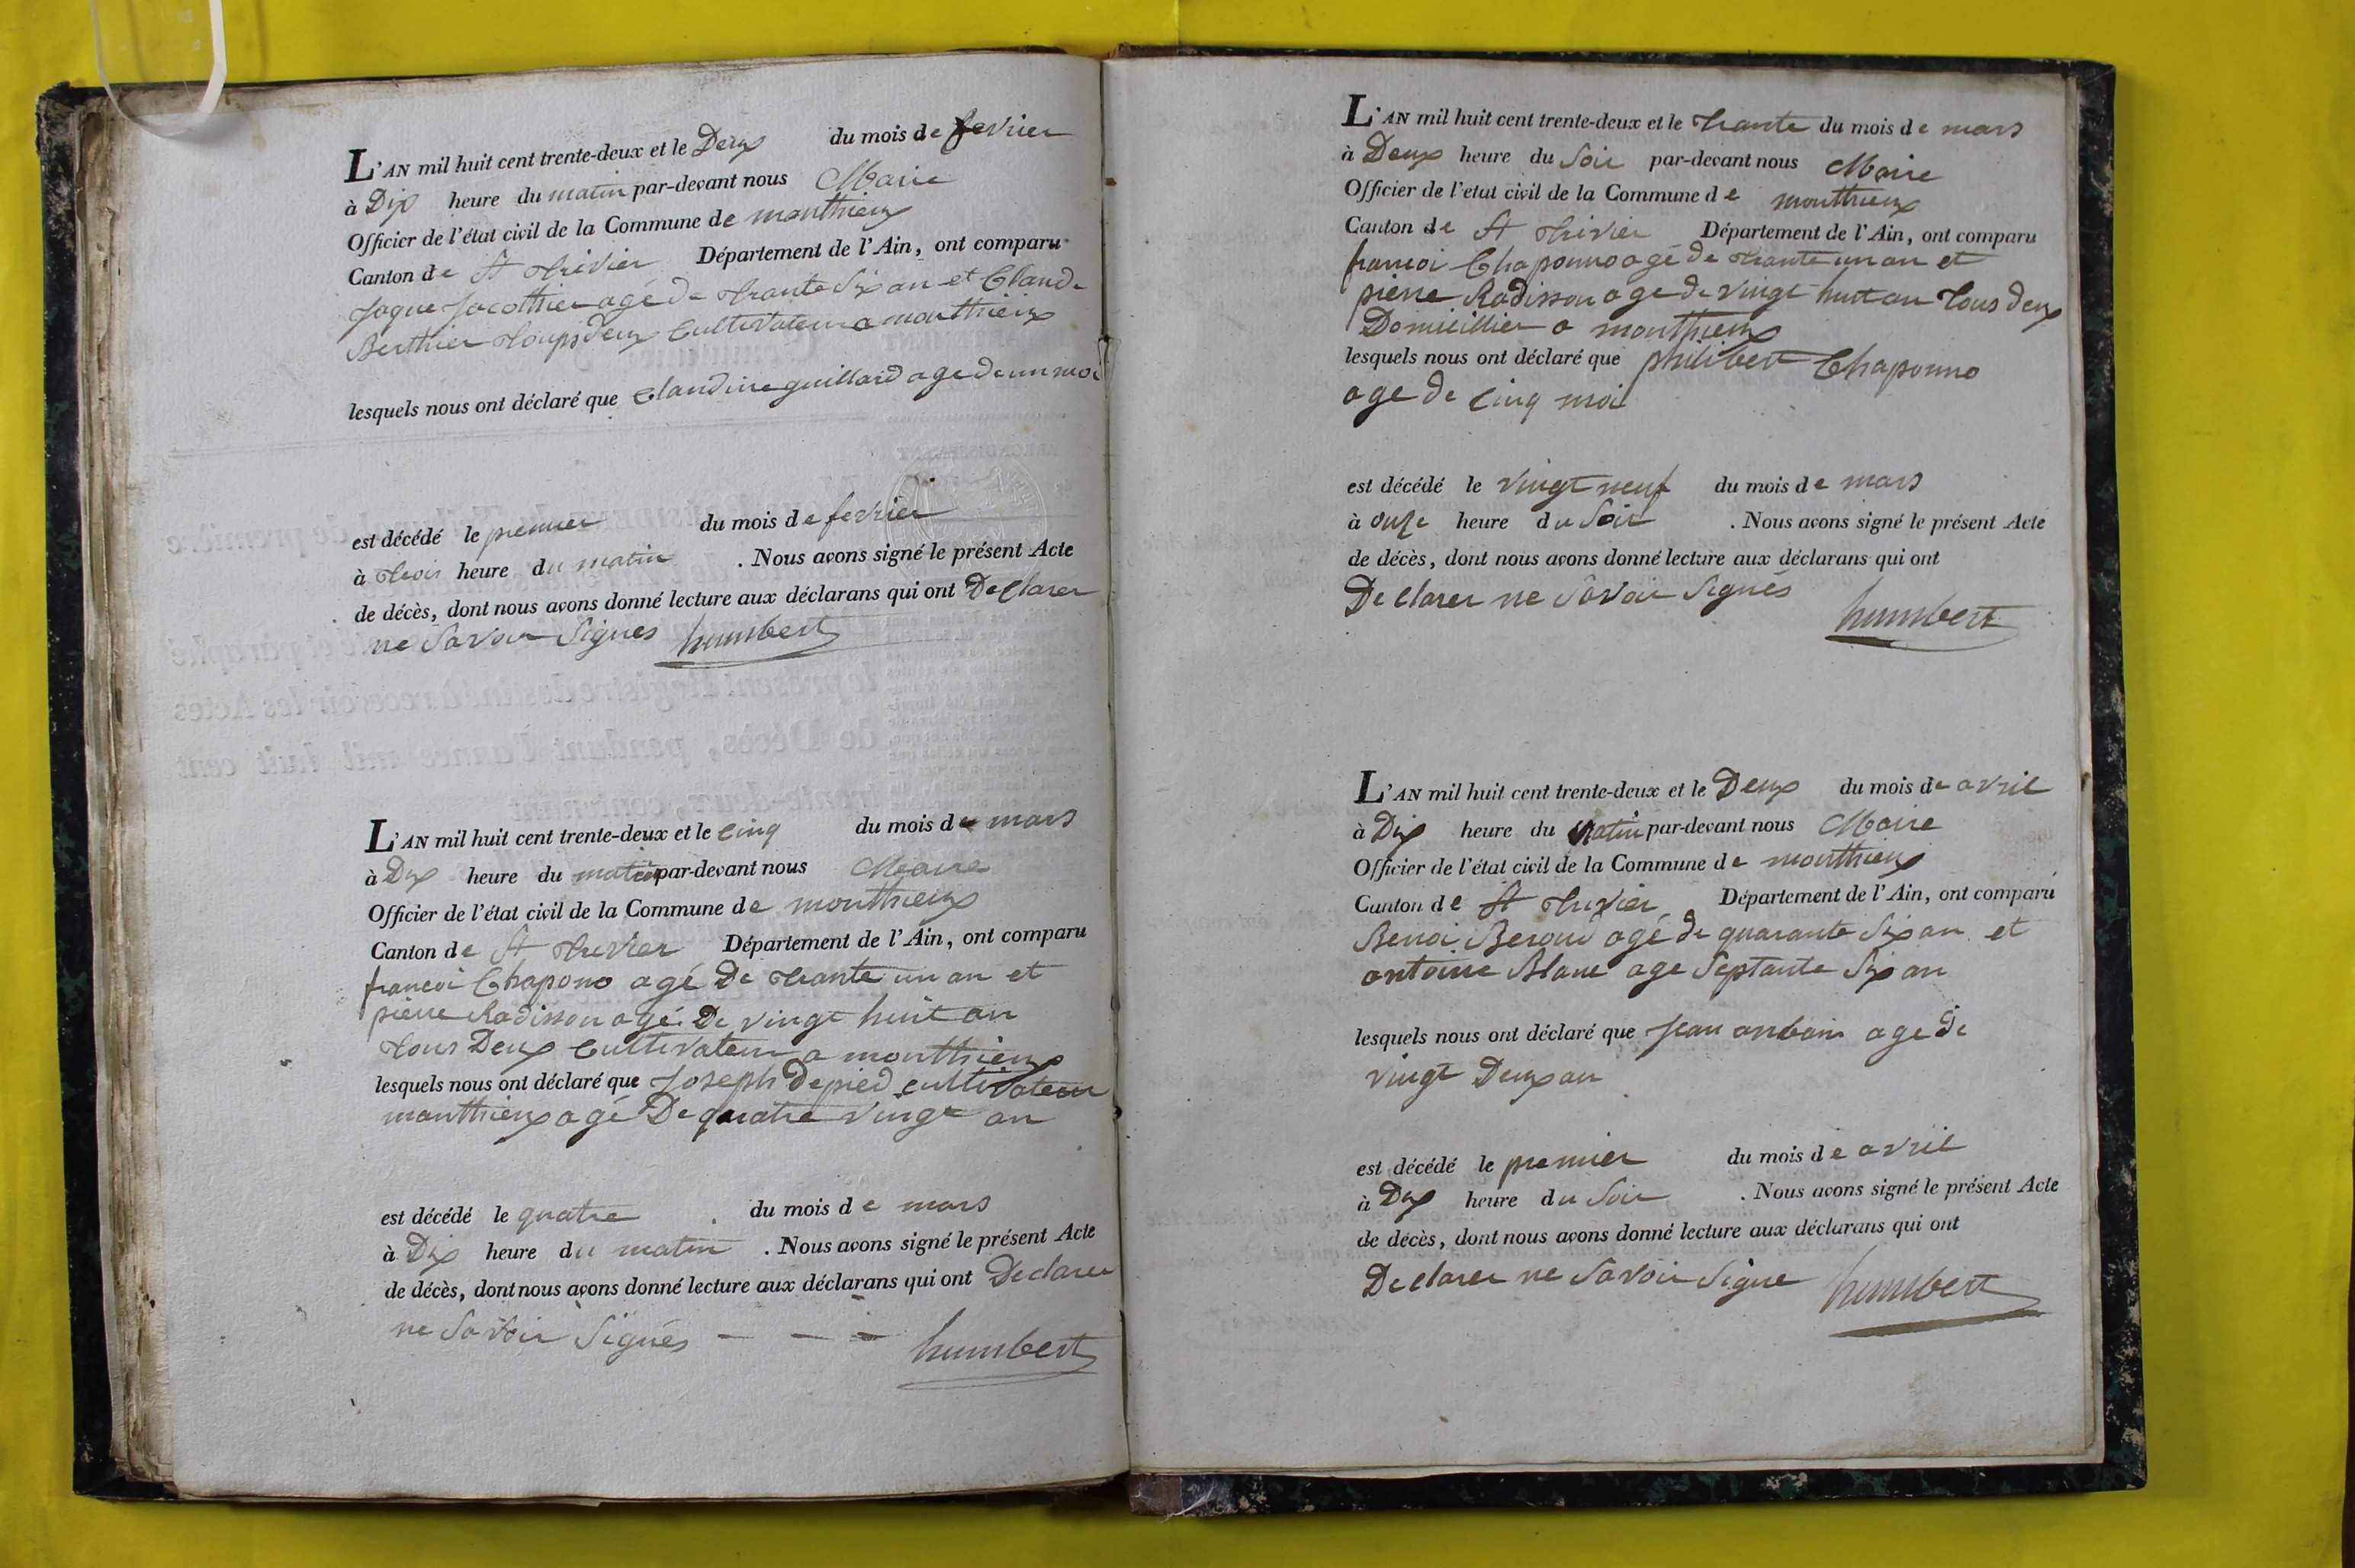 L'AN mil huit cent trente-deux et le Deux du mois de fevrier
à Dix heure du matin par-devant nous Maire
Officier de l'état civil de la Commune de monthieux
Canton de St trivier Département de l'Ain, ont comparu
Jaque Jacottier agé de trante Six an et Claude
Berthier toups deux Cultivateur a monthieux
lesquels nous ont déclaré que Claudine guillard age de un moi
est décédé le premier du mois de fevrier
à trois heure du matin . Nous avons signé le présent Acte
de décès, dont nous avons donné lecture aux déclarans qui ont Declarer
ne Savoir Signes humbert
L'AN mil huit cent trente-deux et le cinq du mois de mars
à Dix heure du matin par-devant nous Maire
Officier de l'état civil de la Commune de monthieux
Canton de St trivier Département de l'Ain, ont comparu
francoi Chapono agé De trante un an et
pierre Radisson agé De vingt huit an
tous Deux Cultivateur a monthieux
lesquels nous ont déclaré que Joseph Depied cultivateur
monthieux agé De quatre vingt an
est décédé le quatre du mois de mars
à Dix heure du matin . Nous avons signé le présent Acte
de décès, dont nous avons donné lecture aux déclarans qui ont Declarer
ne Savoir Signés — — —
humbert
L'AN mil huit cent trente-deux et le trante du mois de mars
à Deux heure du Soir par-devant nous Maire
Officier de l'etat civil de la Commune de monthieux
Canton de St trivier Département de l'Ain, ont comparu
francoi Chaponno agé de trante un an et
pierre Radisson age de vingt huit an tous deux
Domicillier a monthieux
lesquels nous ont déclaré que philibert Chaponno
age de cinq moi
est décédé le vingt neuf du mois de mars
à onze heure du Soir . Nous avons signé le présent Acte
de décès, dont nous avons donné lecture aux déclarans qui ont
Declarer ne Savoir Signés
humbert
L'AN mil huit cent trente-deux et le Deux du mois de avril
à Dix heure du matin par-devant nous Maire
Officier de l'état civil de la Commune de monthieux
Canton de St trivier Département de l'Ain, ont comparu
Benoi agé de quarante Six an et
antoine Blanc age Septante Six an
lesquels nous ont déclaré que Jean age de
vingt Deux an
est décédé le premier du mois de avril
à Dix heure du Soir . Nous avons signé le présent Acte
de décès, dont nous avons donné lecture aux déclarans qui ont
Declarer ne Savoir Signe humbert